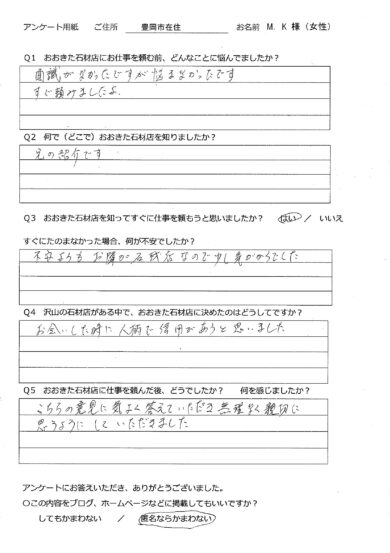 アンケート用紙 ご住所 豊岡市在住 お名前 M. K 様（女性）
Q1 おおきた石材店にお仕事を頼む前、どんなことに悩んでましたか？
面識がなかったですが悩まなかったです
すぐ頼みましたよ
Q2 何で（どこで）おおきた石材店を知りましたか？
兄の紹介です
Q3 おおきた石材店を知ってすぐに仕事を頼もうと思いましたか？ はい / いいえ
すぐにたのまなかった場合、何が不安でしたか？
不安よりも お隣が石材店なので少し気がかりでした
Q4 沢山の石材店がある中で、おおきた石材店に決めたのはどうしてですか？
お会いした時に人柄で信用があると思いました
Q5 おおきた石材店に仕事を頼んだ後、どうでしたか？ 何を感じましたか？
こちらの意見に気よく答えていただき無理なく親切に
思うようにしていただきました
アンケートにお答えいただき、ありがとうございました。
〇この内容をブログ、ホームページなどに掲載してもいいですか？
してもかまわない / 匿名ならかまわない